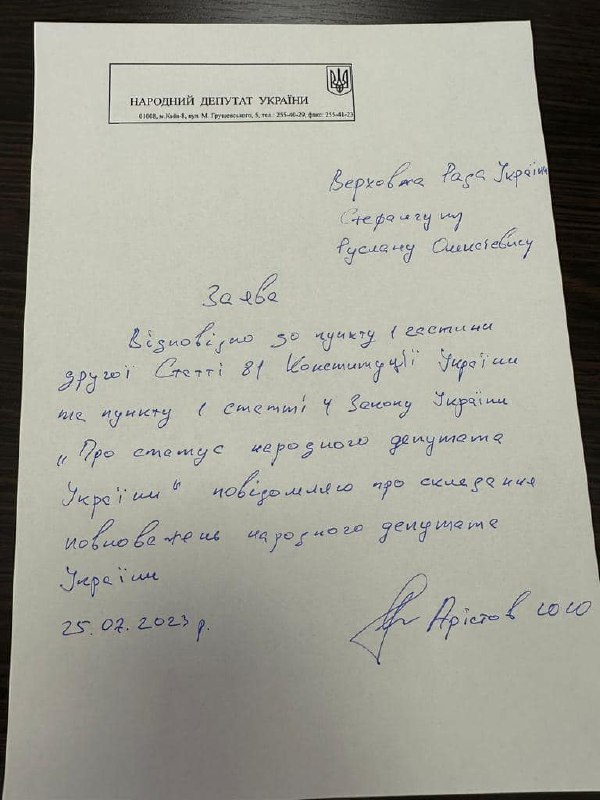 НАРОДНИЙ ДЕПУТАТ УКРАЇНИ
01008, м.Київ-8, вул. М. Грушевського, 5, тел.: 255-40-29, факс: 255-41-23
Верховна Рада України
Стефанчуку
Руслану Олексійовичу
Заява
Відповідно до пункту 1 частини
другої Статті 81 Конституції України
та пункту 1 статті 4 Закону України
„Про статус народного депутата
України“ повідомляю про складання
повноважень народного депутата
України
25.07.2023 р.
Арістов Ю Ю